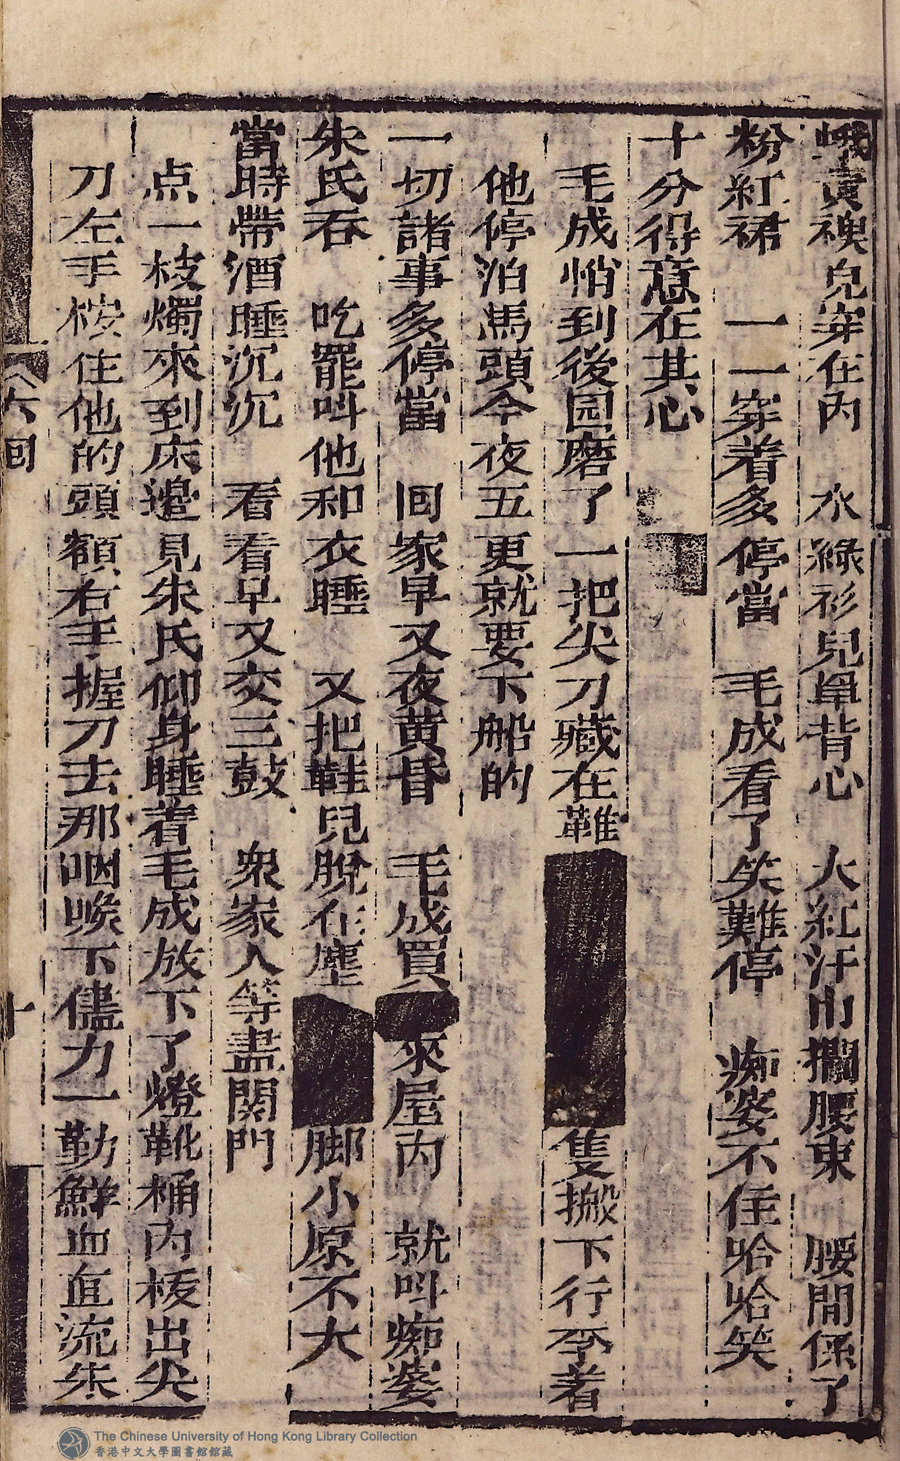 黄襖兒穿在內　水綠衫兒單背心　大紅汗巾攔腰束　腰間係了
粉紅裙　一一穿着多停當　毛成看了笑難停　痴婆不住哈哈笑
十分得意在其心
毛成悄到後园磨了一把尖刀藏在難隻搬下行李着
他停泊馬頭今夜五更就要下船的
一切諸事多停當　回家早又夜黄昏　毛成買來屋內　就叫痴婆
朱氏吞　吃罷叫他和衣睡　又把鞋兒脫在塵脚小原不大
當時帶酒睡沉沉　看看早又交三鼓　衆家人等盡関門
点一枝燭來到床邉見朱氏仰身睡着毛成放下了燈靴桶內拔出尖
刀左手按住他的頭額右手握刀去那咽喉下儘力一勒鮮血直流朱
六回
十
The Chinese University of Hong Kong Library Collection
香港中文大學圖書館館藏